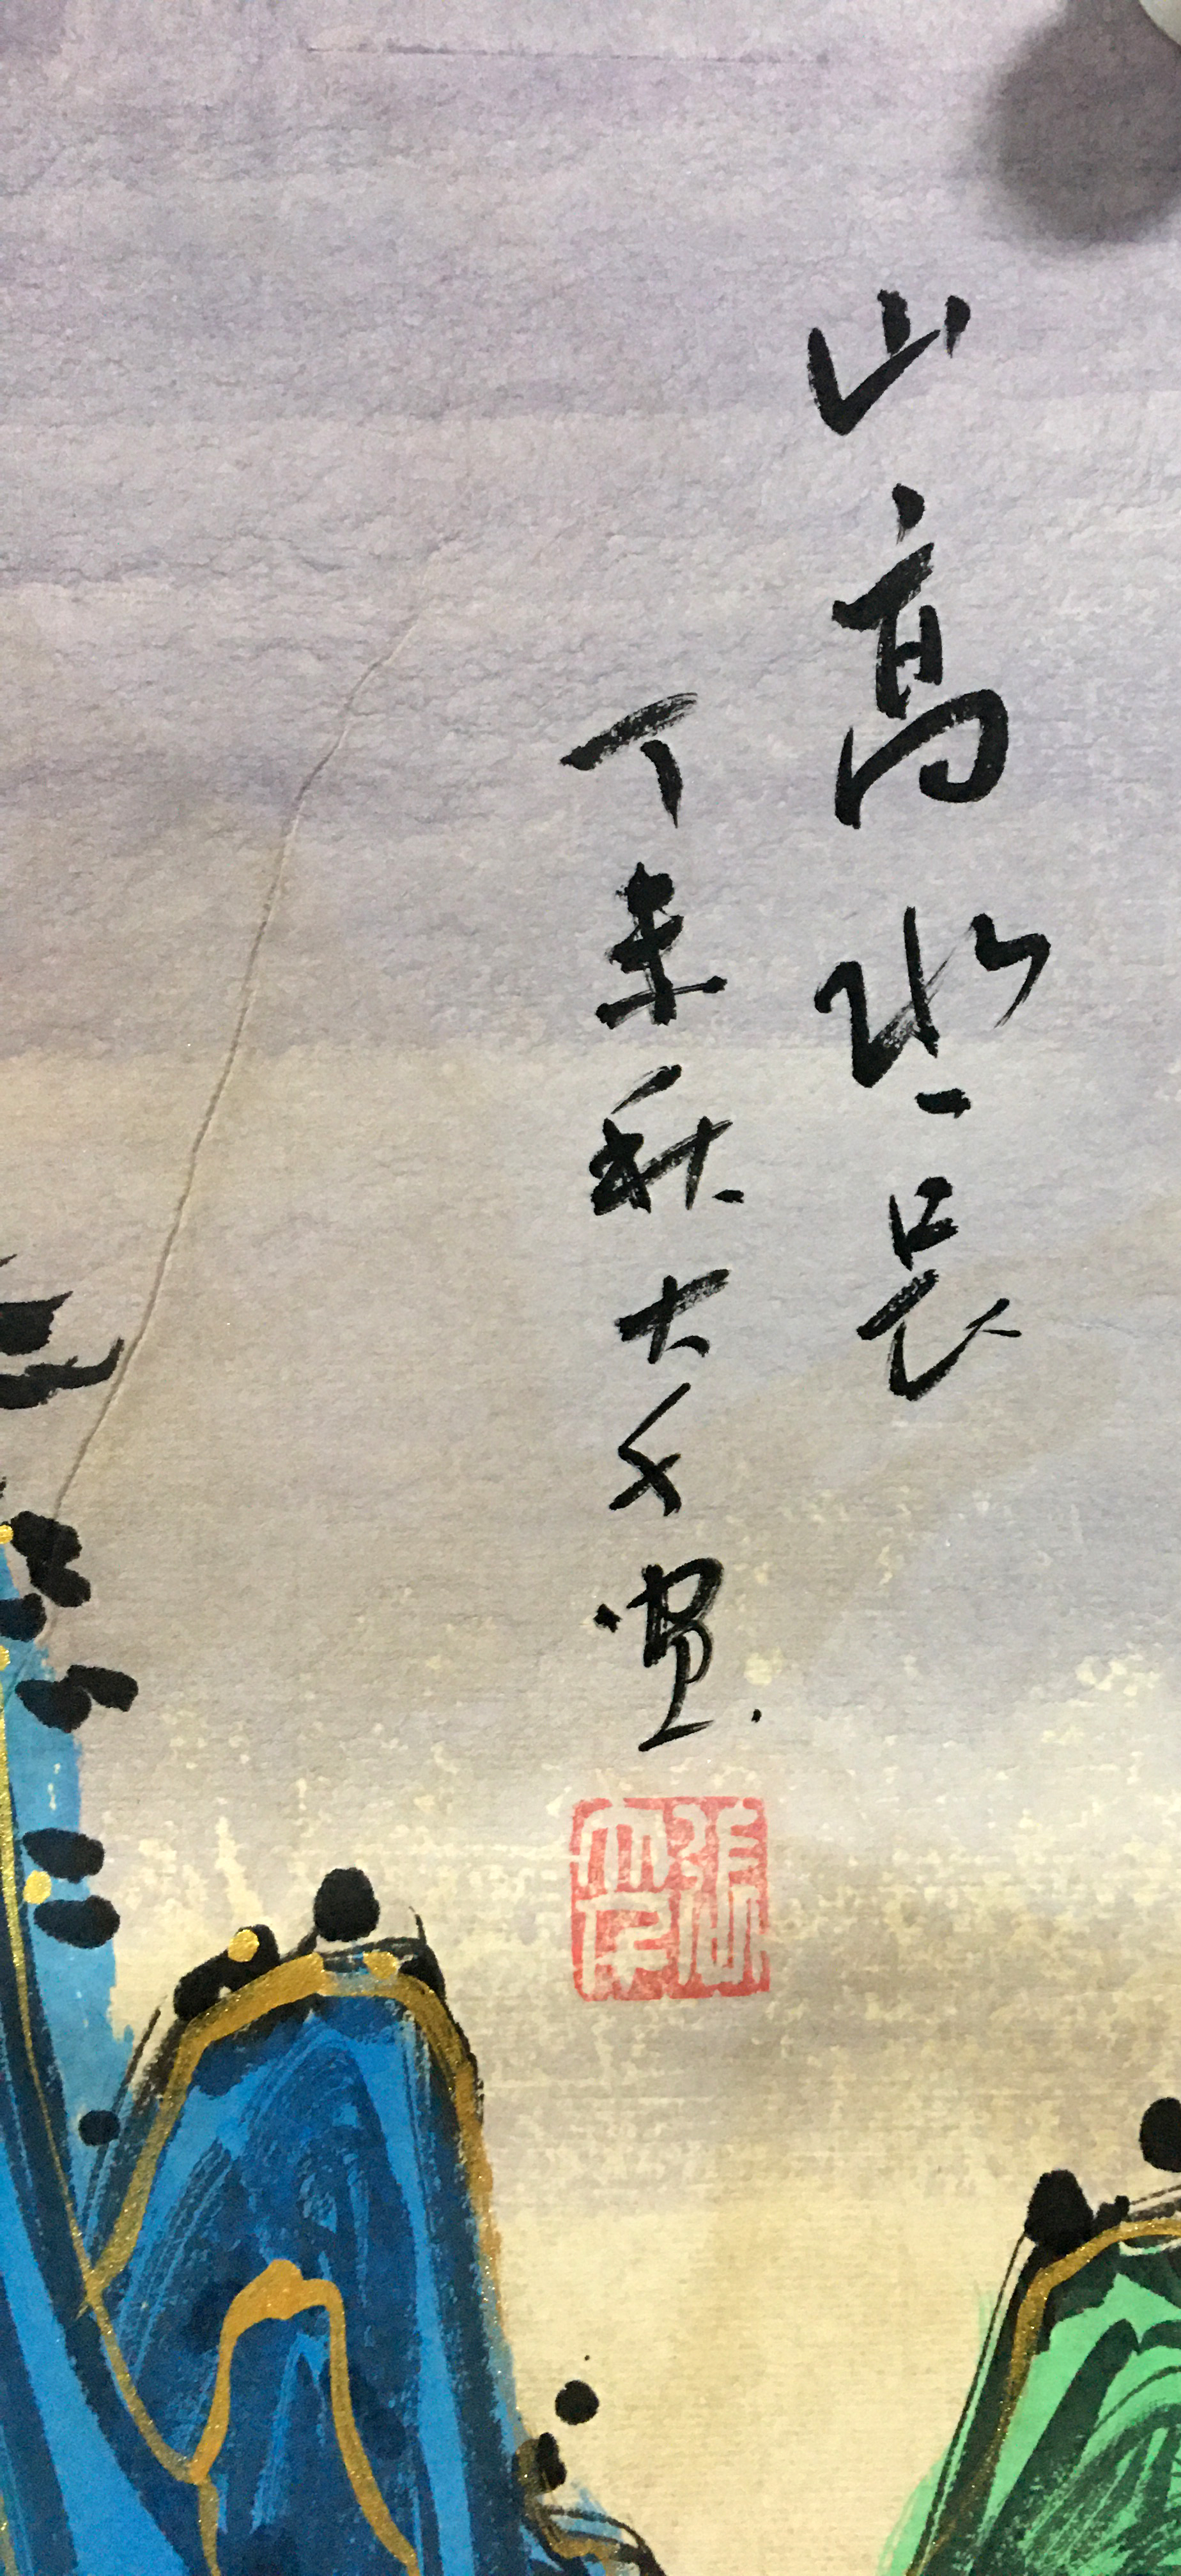 山高水長
丁未秋大千畫